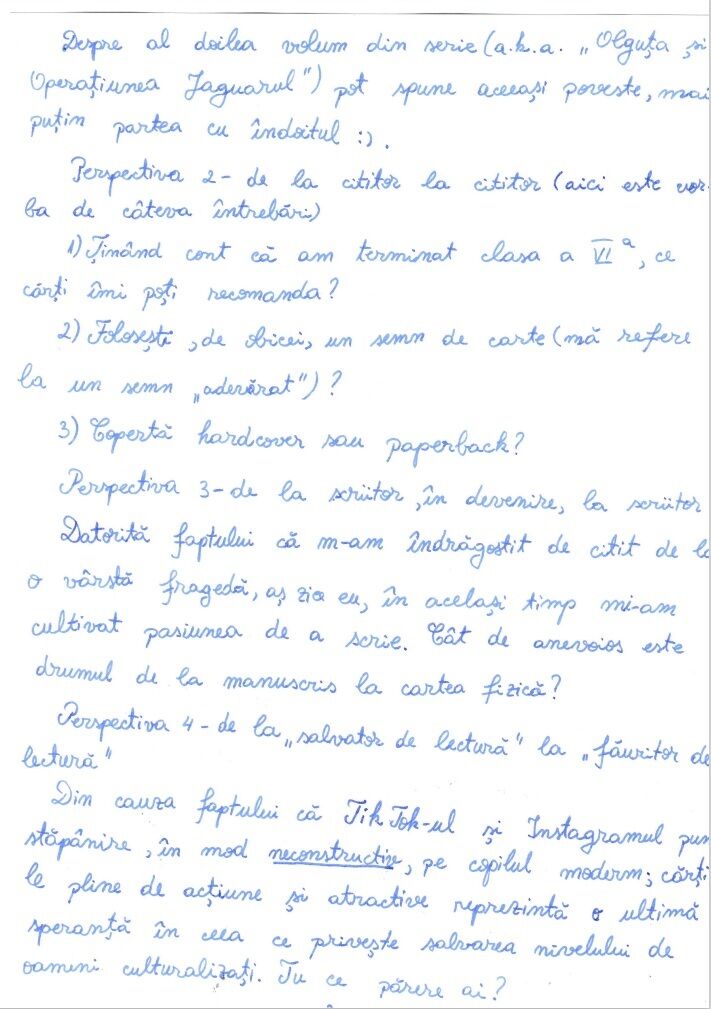 Despre al doilea volum din serie (a.k.a. „Olguța și
Operațiunea Jaguarul") pot spune aceeași poveste, mai
puțin partea cu îndoitul :).
Perspectiva 2 - de la cititor la cititor (aici este vor-
ba de câteva întrebări)
1) Ținând cont că am terminat clasa a VI a, ce
cărți îmi poți recomanda?
2) Folosești, de obicei, un semn de carte (mă refer
la un semn „adevărat")?
3) Copertă hardcover sau paperback?
Perspectiva 3 - de la scriitor, în devenire, la scriitor
Datorită faptului că m-am îndrăgostit de citit de la
o vârstă fragedă, aș zice eu, în același timp mi-am
cultivat pasiunea de a scrie. Cât de anevoios este
drumul de la manuscris la cartea fizică?
Perspectiva 4 - de la „salvator de lectură" la „făuritor de
lectură"
Din cauza faptului că TikTok-ul și Instagramul pun
stăpânire, în mod neconstructiv, pe copilul modern; cărți
le pline de acțiune și atractive reprezintă o ultimă
speranță în ceea ce privește salvarea nivelului de
oameni culturalizați. Tu ce părere ai?